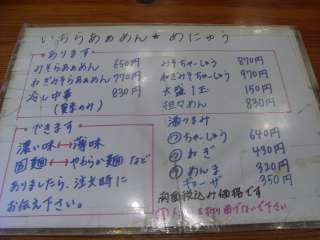 いちらあぁめん★めにゅう
あります
みそらぁめん 650円
ねぎみそらぁめん 770円
冷し中華 830円
(夏季のみ)
みそちゃーしゅう 870円
ねぎみそちゃーしゅう 990円
大盛1玉 150円
担々めん 830円
できます
濃い味↔薄味
固麺↔やわらか麺など
ありましたら、注文時に
お伝え下さい。
酒つまみ
ちゃーしゅう 640円
ねぎ 430円
めんま 320円
ギョーザ 350円
税込み価格です
折り曲げないで下さい